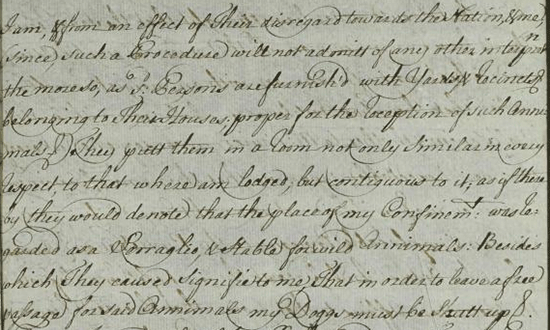 I am, & from an effect of their disregard towards the Nation, & me,
(since such a Procedure will not admitt of any other interp
the more so, as sd. Persons are furnish'd with Yards, & Recincts
belonging to their Houses, proper for the Reception of such Anni
mals) They putt them in a Room not only Similar in every
respect to that where am lodged, but contiguous to it; as if there
by they would denote that the place of my Confinemt: was re-
garded as a Serraglio, & Stable for wild Annimals: Besides
which They caused signifie to me, that in order to leave a free
passage for said Annimals my Doggs must be Shutt up